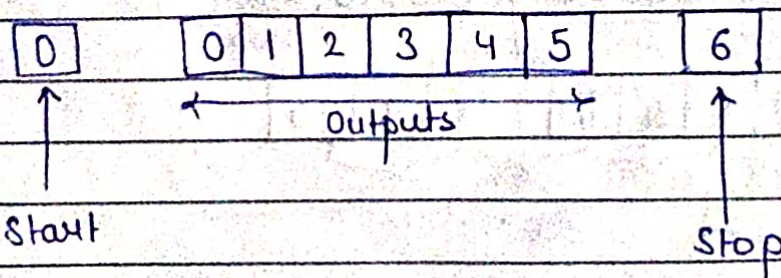 0 0 1 2 3 4 5 6
Outputs
Start
Stop